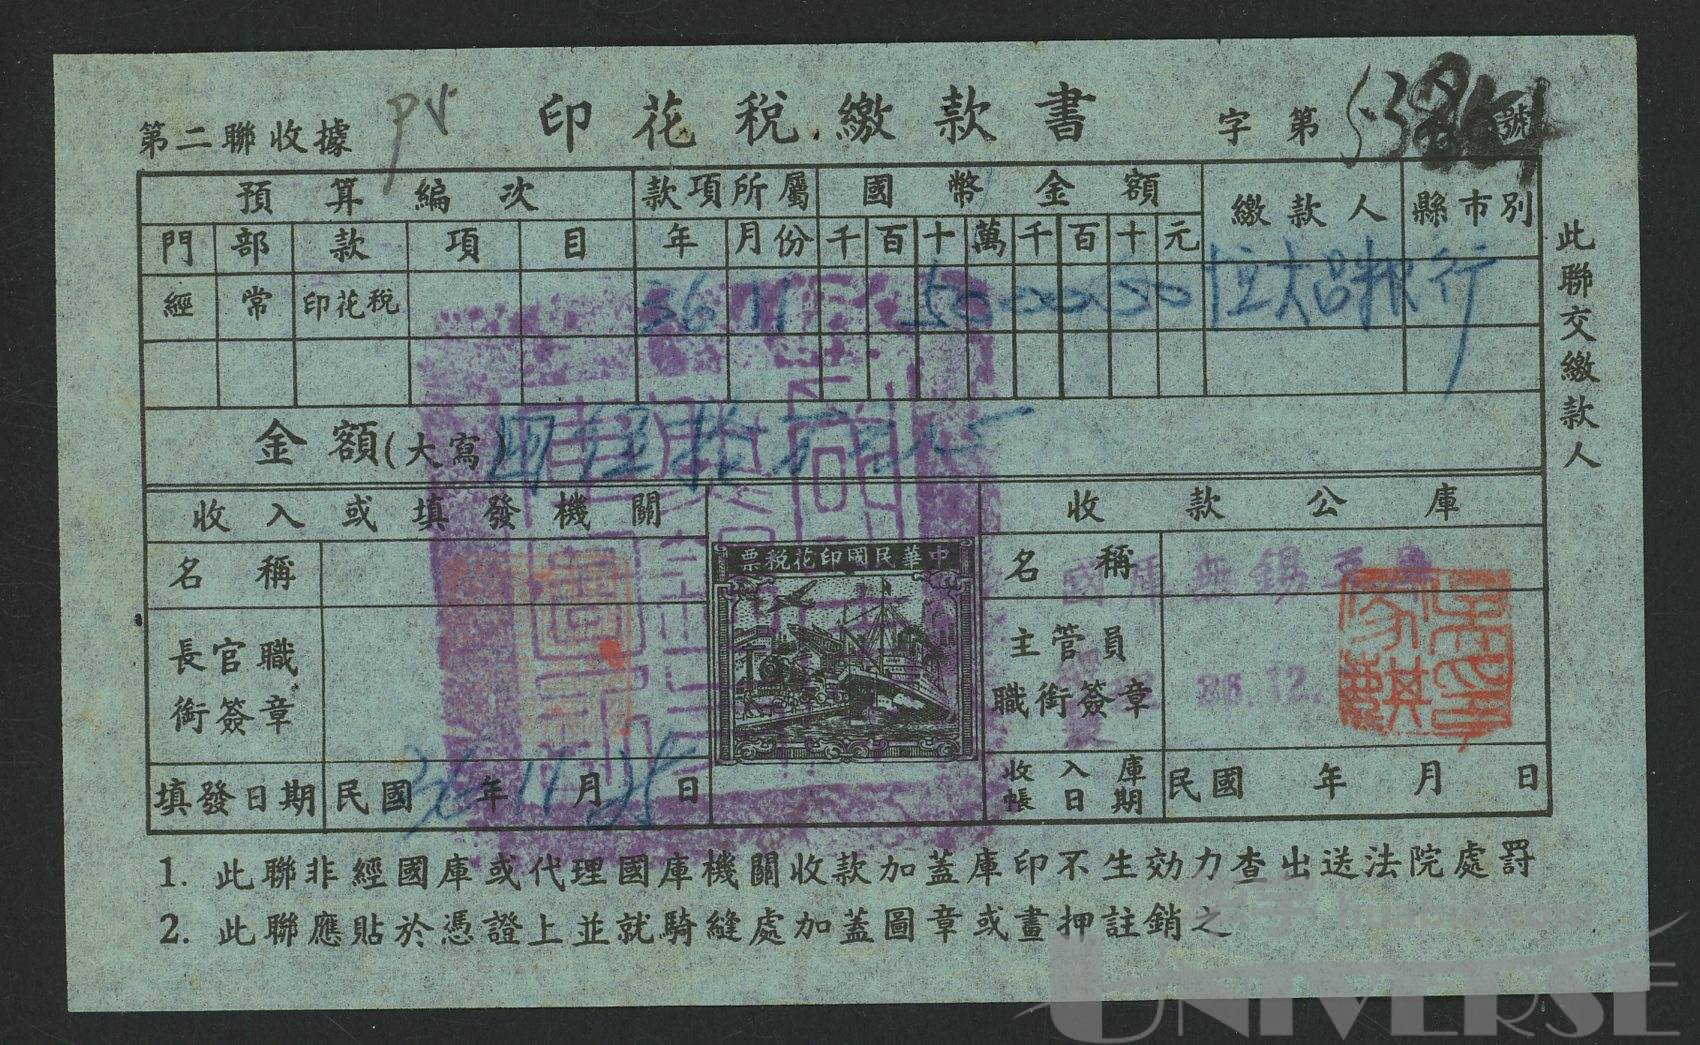 第二聯收據
印花稅繳款書
字第 號
預算編次 款項所屬 國幣金額 繳款人 縣市別
門 部 款 項 目 年 月份 千 百 十 萬 千 百 十 元
經 常 印花稅 36 11 恒大昌 行
金額(大寫)
收入或填發機關 收款公庫
中華民國印花稅票
名稱 名稱 國庫無錫
長官職銜簽章 主管員職銜簽章
填發日期 民國36年11月25日 收入庫帳日期 民國 年 月 日
此聯交繳款人
1. 此聯非經國庫或代理國庫機關收款加蓋庫印不生効力查出送法院處罰
2. 此聯應貼於憑證上並就騎縫處加蓋圖章或畫押註銷之
UNIVERSE